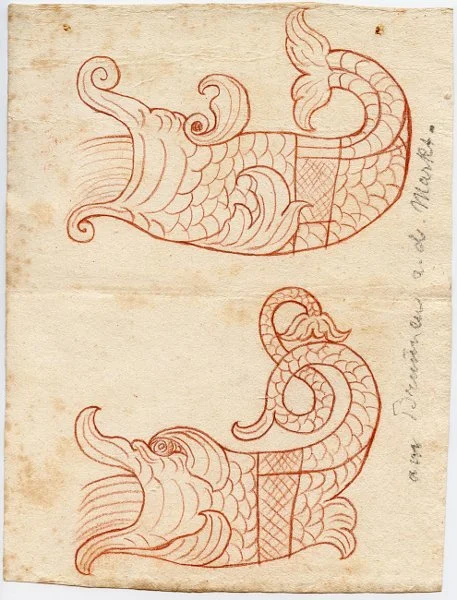 am Brunnen a. d. Markt.